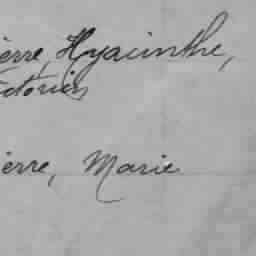 ierre, Hyacinthe,
ictorien
ierre, Marie